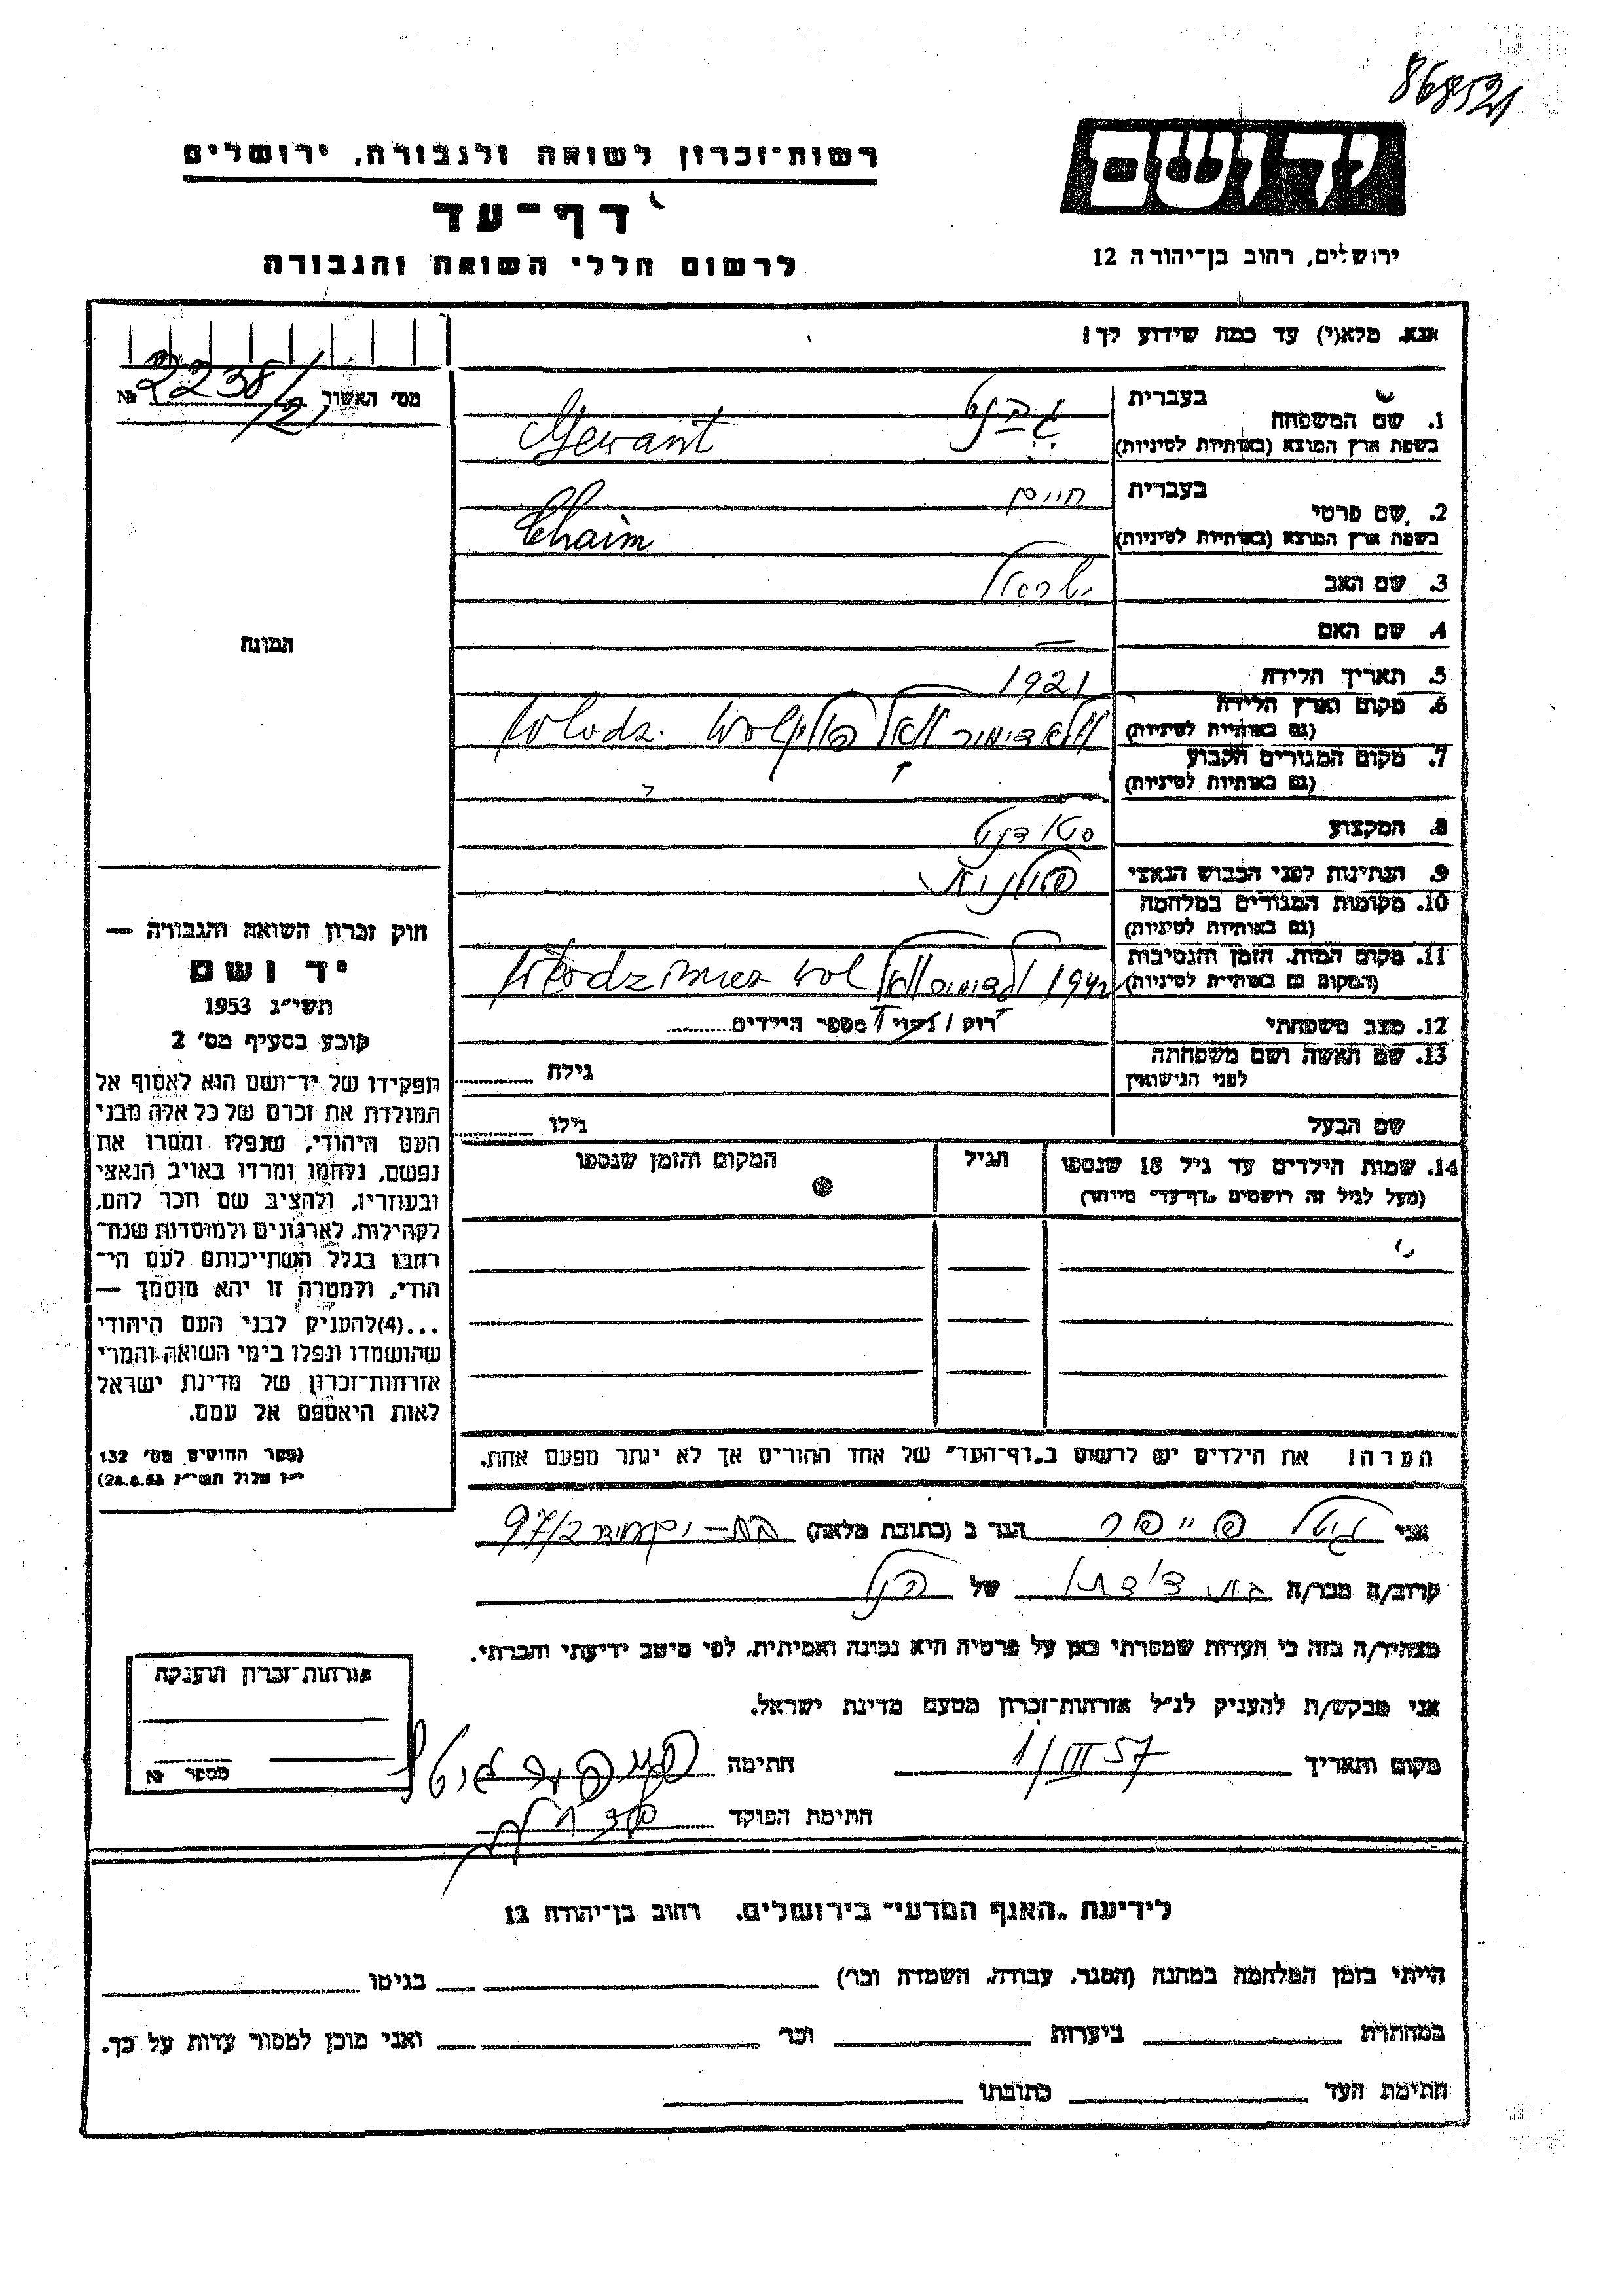 868521
רשות־זכרון לשואה ולגבורה, ירושלים
יד ושם
דף־עד
לרשום חללי השואה והגבורה
ירושלים, רחוב בן־יהודה 12
אנא, מלא(י) עד כמה שידוע לך!
מס' האשור 2238/21 №
1. שם המשפחה
בעברית
בשפת ארץ המוצא (באותיות לטיניות) Gewant
2. שם פרטי
בעברית חיים
בשפת ארץ המוצא (באותיות לטיניות) Chaim
3. שם האב ישראל
4. שם האם —
תמונה
5. תאריך הלידה 1921
6. מקום וארץ הלידה
(גם באותיות לטיניות) Wlodz.
7. מקום המגורים הקבוע
(גם באותיות לטיניות)
8. המקצוע סטודנט
9. הנתינות לפני הכבוש הנאצי פולנית
10. מקומות המגורים במלחמה
(גם באותיות לטיניות)
11. מקום המות, הזמן והנסיבות
(המקום גם באותיות לטיניות) 1942
12. מצב משפחתי רוק / נשוי / מספר הילדים
13. שם האשה ושם משפחתה
לפני הנישואין
גילה
שם הבעל
גילו
14. שמות הילדים עד גיל 18 שנספו
(מעל לגיל זה רושמים „דף־עד" מיוחד)
הגיל
המקום והזמן שנספו
חוק זכרון השואה והגבורה —
יד ושם
תשי"ג 1953
קובע בסעיף מס' 2
תפקידו של יד־ושם הוא לאסוף אל
המולדת את זכרם של כל אלה מבני
העם היהודי, שנפלו ומסרו את
נפשם, נלחמו ומרדו באויב הנאצי
ובעוזריו, ולהציב שם וזכר להם,
לקהילות, לארגונים ולמוסדות שנח־
רבו בגלל השתייכותם לעם הי־
הודי, ולמטרה זו יהא מוסמך —
...(4)להעניק לבני העם היהודי
שהושמדו ונפלו בימי השואה והמרי
אזרחות־זכרון של מדינת ישראל
לאות היאספם אל עמם.
(ספר החוקים מס' 132
י"ז אלול תשי"ג 28.8.53)
הערה! את הילדים יש לרשום ב„דף־העד" של אחד ההורים אך לא יותר מפעם אחת.
אני גיטל פייפר הגר ב (כתובת מלאה) בת-ים 97/2
קרוב/ה מכר/ה בת דודתו של הנ"ל
מצהיר/ה בזה כי העדות שמסרתי כאן על פרטיה היא נכונה ואמיתית, לפי מיטב ידיעתי והכרתי.
אני מבקש/ת להעניק לנ"ל אזרחות־זכרון מטעם מדינת ישראל.
מקום ותאריך 1/III 57 חתימה פייפר גיטל
חתימת הפוקד
אזרחות־זכרון הוענקה
מספר №
לידיעת „האגף המדעי" בירושלים, רחוב בן־יהודה 12
הייתי בזמן המלחמה במחנה (הסגר, עבודה, השמדה וכו') בגיטו
במחתרת ביערות וכו' ואני מוכן למסור עדות על כך.
חתימת העד כתובתו